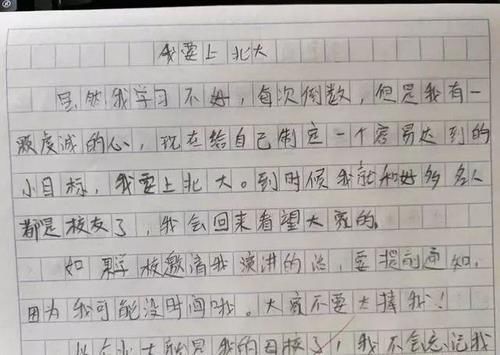 我要上北大
虽然我学习不好，每次倒数，但是我有一
颗虔诚的心，现在给自己制定一个容易达到的
小目标，我要上北大。到时候我就和好多名人
都是校友了，我会回来看望大家的。
如果学校邀请我演讲的话，要提前通知，
因为我可能没时间哦。大家不要太捧我！
以后北大就是我的母校了，我不会忘记我